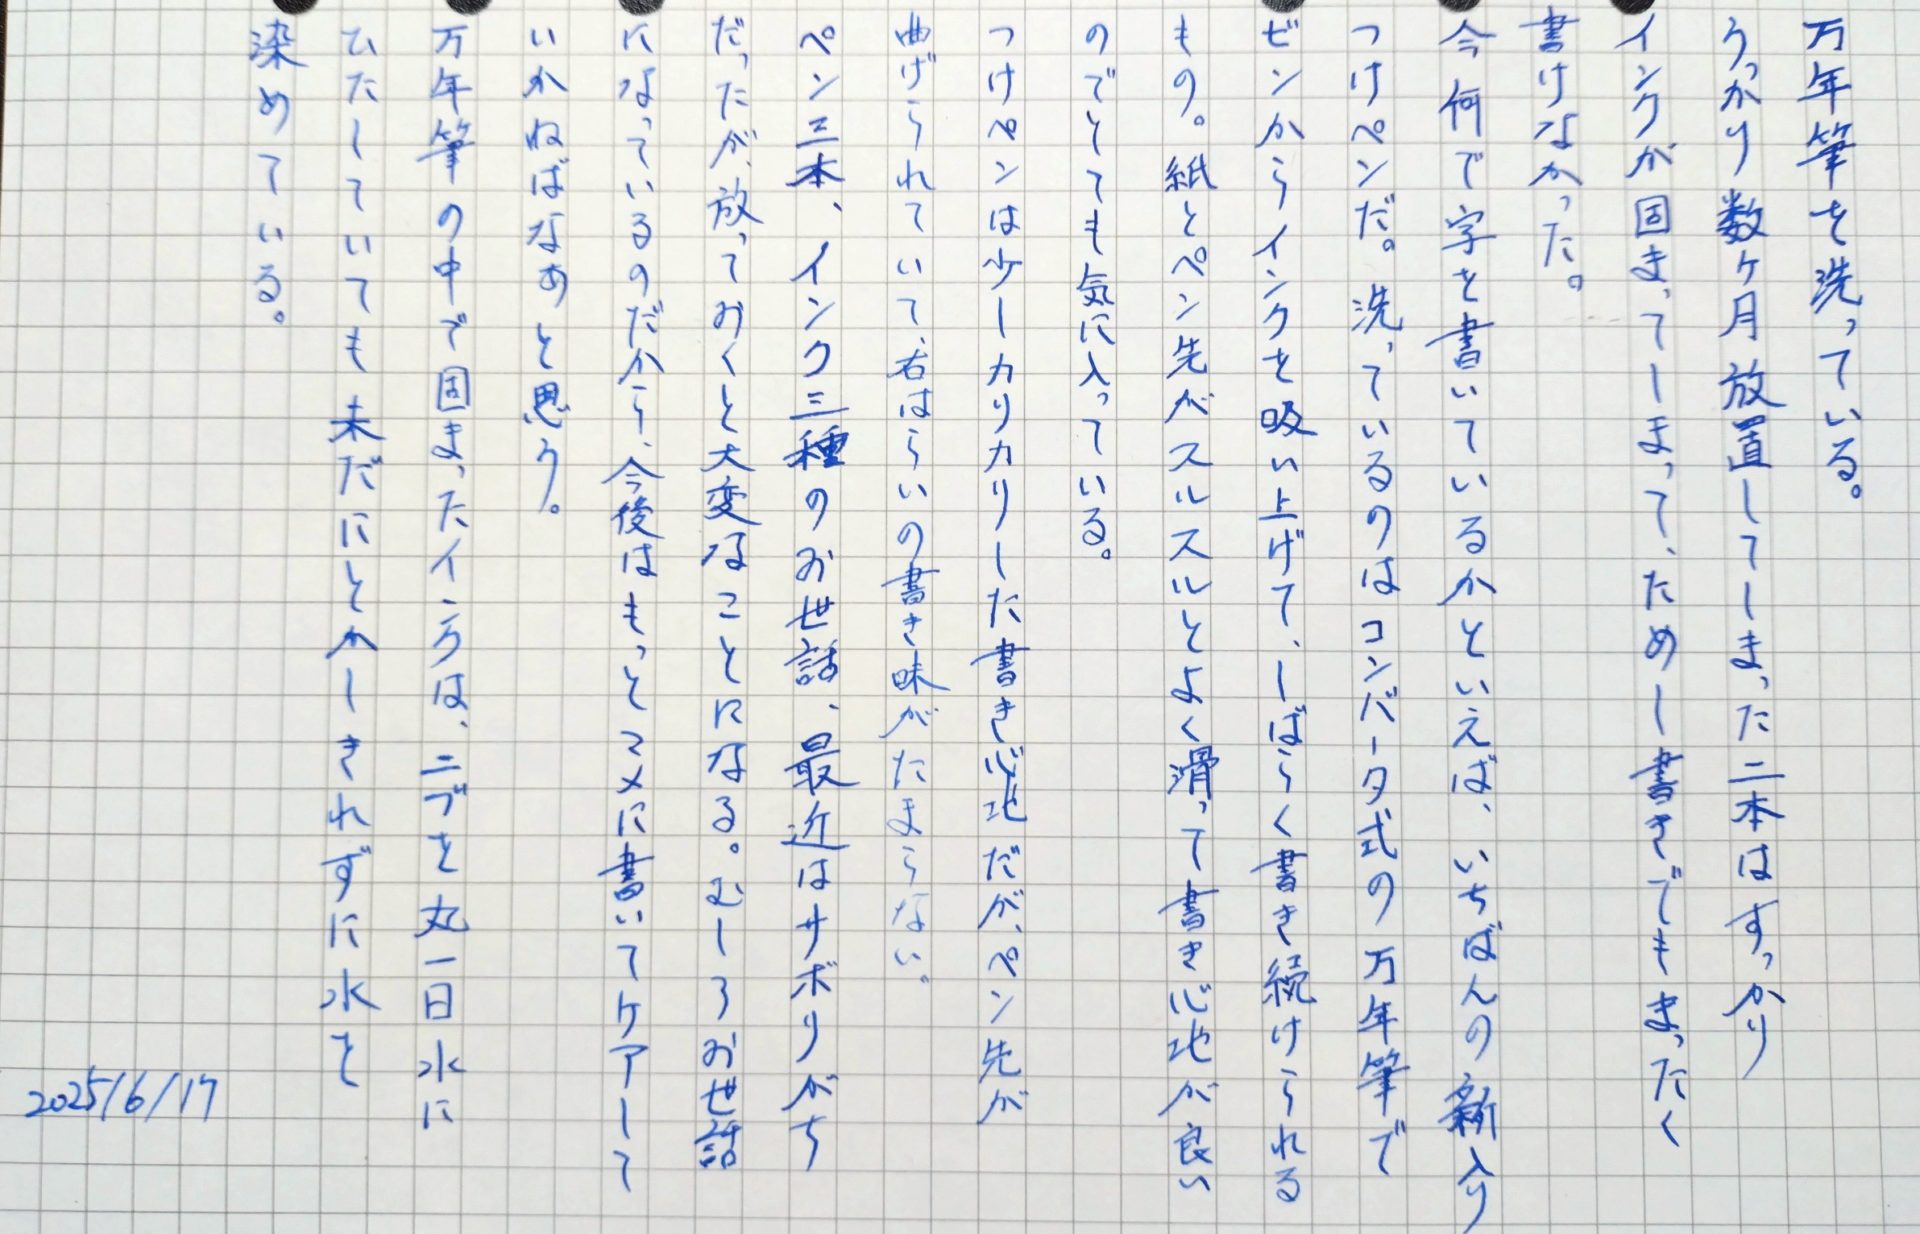 万年筆を洗っている。
うっかり数ヶ月放置してしまった二本はすっかり
インクが固まってしまって、ためし書きでもまったく
書けなかった。
今何で字を書いているかといえば、いちばんの新入り
つけペンだ。洗っているのはコンバータ式の万年筆で
ビンからインクを吸い上げて、しばらく書き続けられる
もの。紙とペン先がスルスルとよく滑って書き心地が良い
のでとても気に入っている。
つけペンは少しカリカリした書き心地だが、ペン先が
曲げられていて、右はらいの書き味がたまらない。
ペン三本、インク三種のお世話、最近はサボりがち
だったが、放っておくと大変なことになる。むしろお世話
になっているのだから、今後はもっとマメに書いてケアーして
いかねばなあと思う。
万年筆の中で固まったインクは、ニブを丸一日水に
ひたしていても未だにとかしきれずに水を
染めている。
2025/6/17